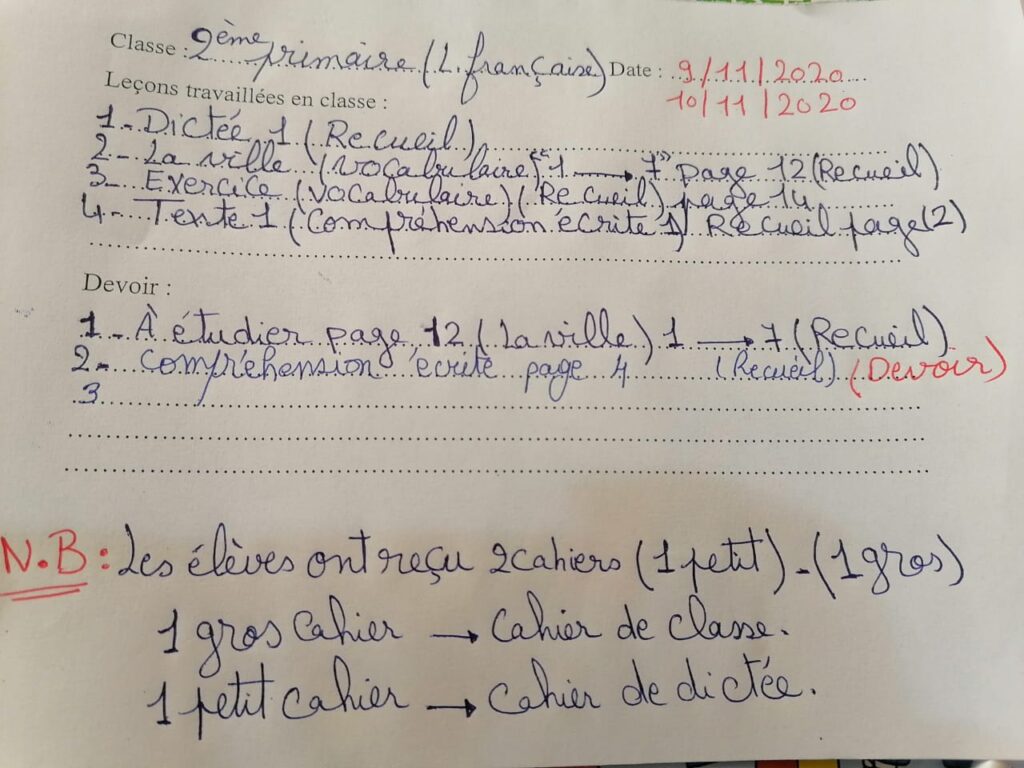 Classe : 2ème primaire (L. française) Date : 9/11/2020
10/11/2020
Leçons travaillées en classe :
1- Dictée 1 (Recueil)
2- La ville (vocabulaire) "1 → 7" page 12 (Recueil)
3- Exercice (vocabulaire) (Recueil) page 14
4- Texte 1 (Compréhension écrite 1) Recueil page (2)
Devoir :
1- À étudier page 12 (La ville) 1 → 7 (Recueil)
2- Compréhension écrite page 4 (Recueil) (Devoir)
3
N.B : Les élèves ont reçu 2 cahiers (1 petit) - (1 gros)
1 gros cahier → Cahier de classe.
1 petit cahier → Cahier de dictée.